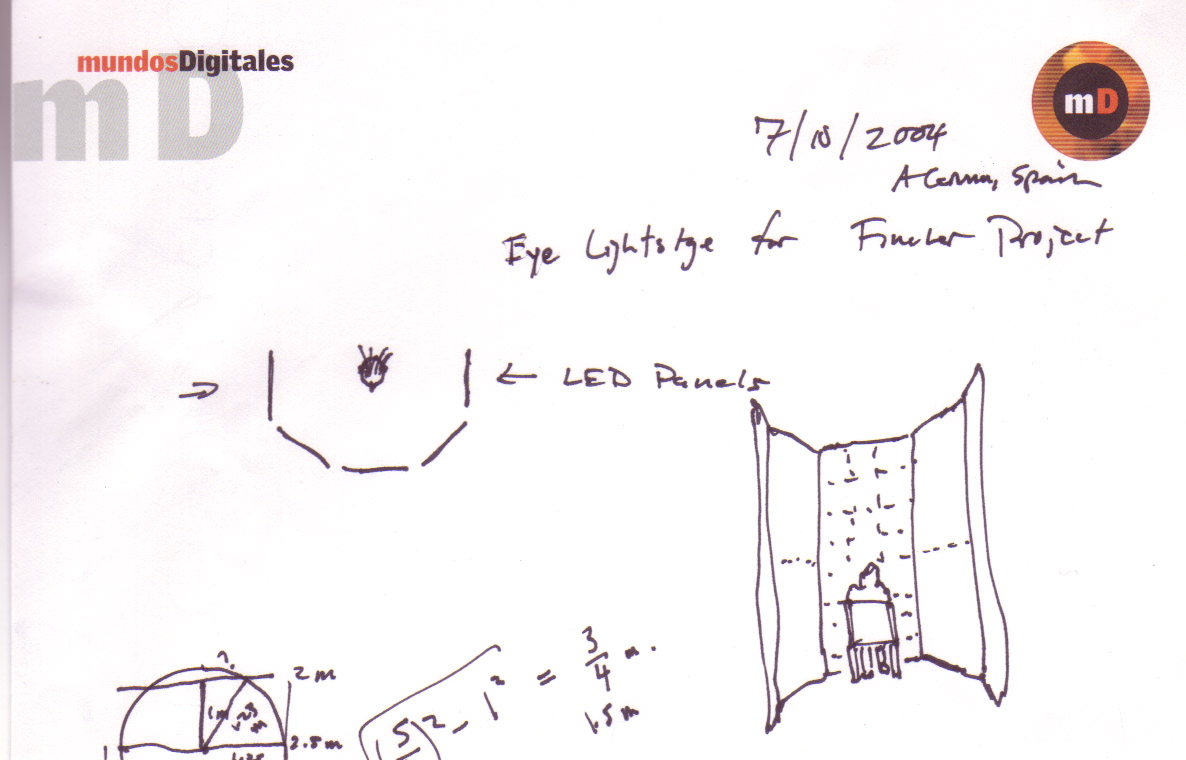 mundosDigitales
mD
mD
7/10/2004
A Coruna, Spain
Eye Lightstge for Fincher Project
← LED Panels
2 m
1m
2.5 m
1.25
(5)² - 1² = 3/4 m.
1.5 m